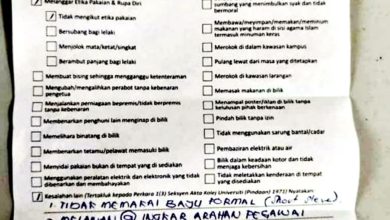 Melanggar Etika Pakaian & Rupa Diri
Tidak mengikut etika pakaian
Bersubang bagi lelaki
Menjolok mata/ketat/singkat
Berambut panjang bagi lelaki
Membuat bising sehingga mengganggu ketenteraman
Mengubah/mengalihkan perabot tanpa kebenaran pengetua
Menjalankan perniagaan tanpa kebenaran
Membenarkan penghuni lain menginap di bilik
Memelihara binatang di bilik
Membenarkan tetamu/pelawat memasuki bilik
Menyidai pakaian bukan di tempat yang di sediakan
Menggunakan peralatan elektrik dan elektronik yang tidak dibenarkan dan membahayakan
sumbang yang menimbulkan syak dan tidak bermoral
Membawa/menyimpan/memakan/meminum makanan yang haram di sisi agama Islam termasuk minuman keras
Merokok di dalam kawasan kampus
Pulang lewat dari masa yang ditetapkan
Merokok di kawasan larangan
Memasak makanan di bilik
Menampal poster/iklan di bilik tanpa kelulusan pihak berkenaan
Pindah bilik tanpa izin
Tidak menggunakan sarung bantal/cadar
Pembaziran elektrik atau air
Bilik dalam keadaan kotor dan tidak menjaga kebersihan
Tidak meletakkan kenderaan di tempat yang disediakan
Kesalahan lain (Tertakluk kepada Perkara 1(3) Seksyen Akta Kolej Universiti (Pindaan) 1971) Nyatakan:
1. TIDAK MEMAKAI BAJU FORMAL
2. MELAWAN @ INGKAR ARAHAN PEGAWAI